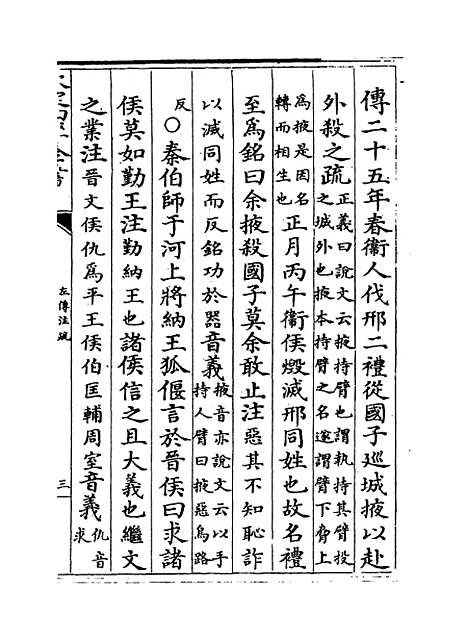 傳二十五年春衛人伐邢二禮從國子巡城掖以赴
外殺之疏正義曰說文云掖持臂也謂執持其臂投
之城外也掖本持臂之名遂謂臂下脅上
為掖是因名
轉而相生也正月丙午衛侯燬滅邢同姓也故名禮
至為銘曰余掖殺國子莫余敢止注惡其不知恥詐
以滅同姓而反銘功於器音義掖音亦說文云以手
持人臂曰掖惡烏路
反○秦伯師于河上將納王狐偃言於晉侯曰求諸
侯莫如勤王注勤納王也諸侯信之且大義也繼文
之業注晉文侯仇為平王侯伯匡輔周室音義仇音
求
左傳注疏